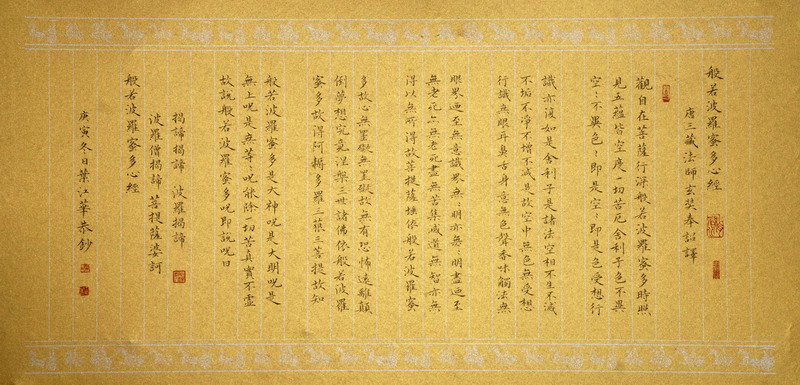 般若波羅蜜多心經
唐三藏法師玄奘奉詔譯
觀自在菩薩行深般若波羅蜜多時照
見五蘊皆空度一切苦厄舍利子色不異
空〻不異色〻即是空〻即是色受想行
識亦復如是舍利子是諸法空相不生不滅
不垢不淨不增不減是故空中無色無受想
行識無眼耳鼻舌身意無色聲香味觸法無
眼界迺至無意識界無〻明亦無〻明盡迺至
無老死亦無老死盡無苦集滅道無智亦無
得以無所得故菩提薩埵依般若波羅蜜
多故心無罣礙無罣礙故無有恐怖遠離顛
倒夢想究竟涅槃三世諸佛依般若波羅
蜜多故得阿耨多羅三藐三菩提故知
般若波羅蜜多是大神呪是大明呪是
無上呪是無等〻呪能除一切苦真實不虛
故說般若波羅蜜多呪即說呪曰
揭諦揭諦 波羅揭諦
波羅僧揭諦 菩提薩婆訶
般若波羅蜜多心經
庚寅冬日葉江華恭鈔